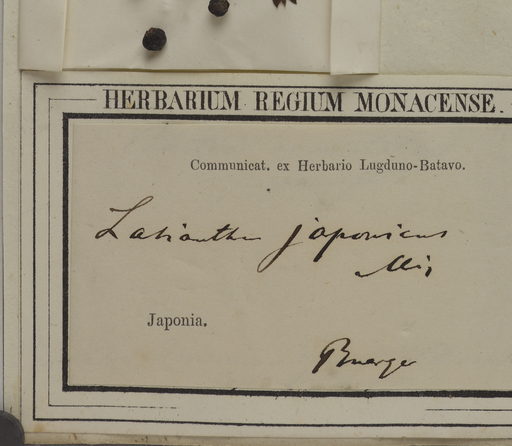 HERBARIUM REGIUM MONACENSE.
Communicat. ex Herbario Lugduno-Batavo.
Lasianthus japonicus
Miq
Japonia.
Buerger